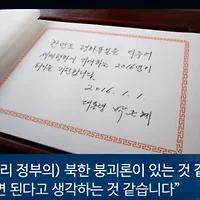 한반도 평화통일을 이루어
세계평화에 기여하는 2016년이
되기를 기원합니다.
2016. 1. 1.
대통령 박근혜
리 정부의) 북한 붕괴론이 있는 것 같
면 된다고 생각하는 것 같습니다”